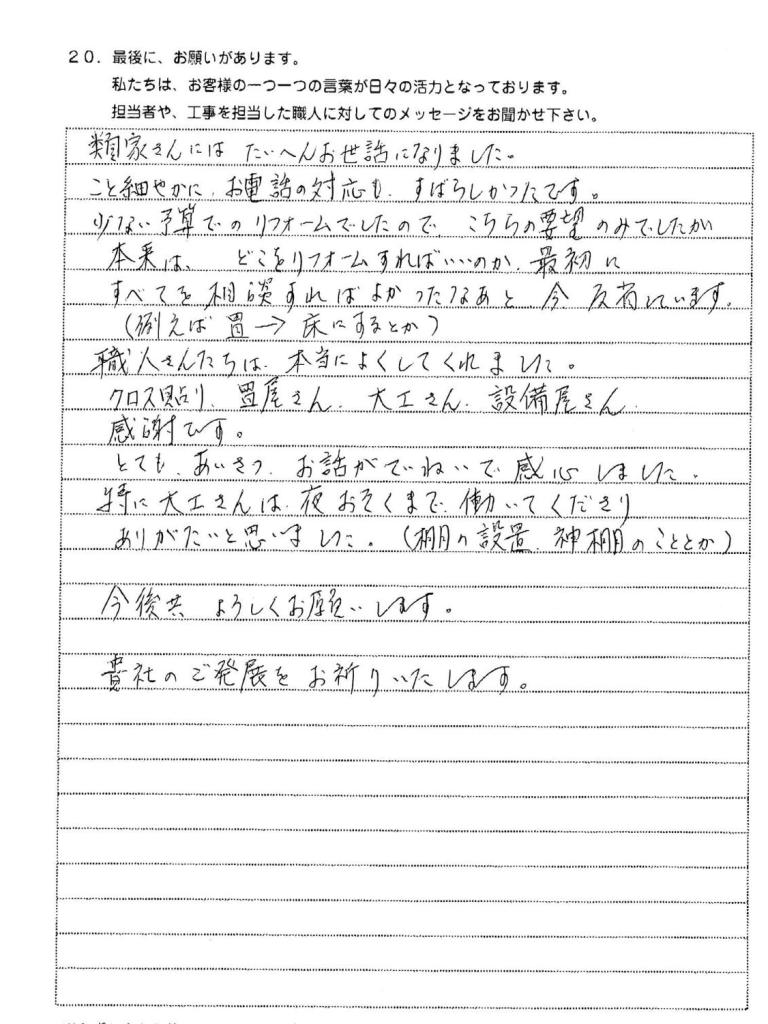 20. 最後に、お願いがあります。
私たちは、お客様の一つ一つの言葉が日々の活力となっております。
担当者や、工事を担当した職人に対してのメッセージをお聞かせ下さい。
類家さんには たいへんお世話になりました。
こと細やかに、お電話の対応も、すばらしかったです。
少ない予算でのリフォームでしたので こちらの要望のみでしたが
本来は、どこをリフォームすればいいのか、最初に
すべてを相談すればよかったなあと 今 反省しています。
(例えば 畳→床にするとか)
職人さんたちは、本当によくしてくれました。
クロス貼り、畳屋さん、大工さん、設備屋さん
感謝です。
とても、あいさつ、お話がていねいで感心しました。
特に大工さんは、夜おそくまで、働いてくださり
ありがたいと思いました。(棚の設置、神棚のこととか)
今後共 よろしくお願いします。
貴社のご発展をお祈りいたします。